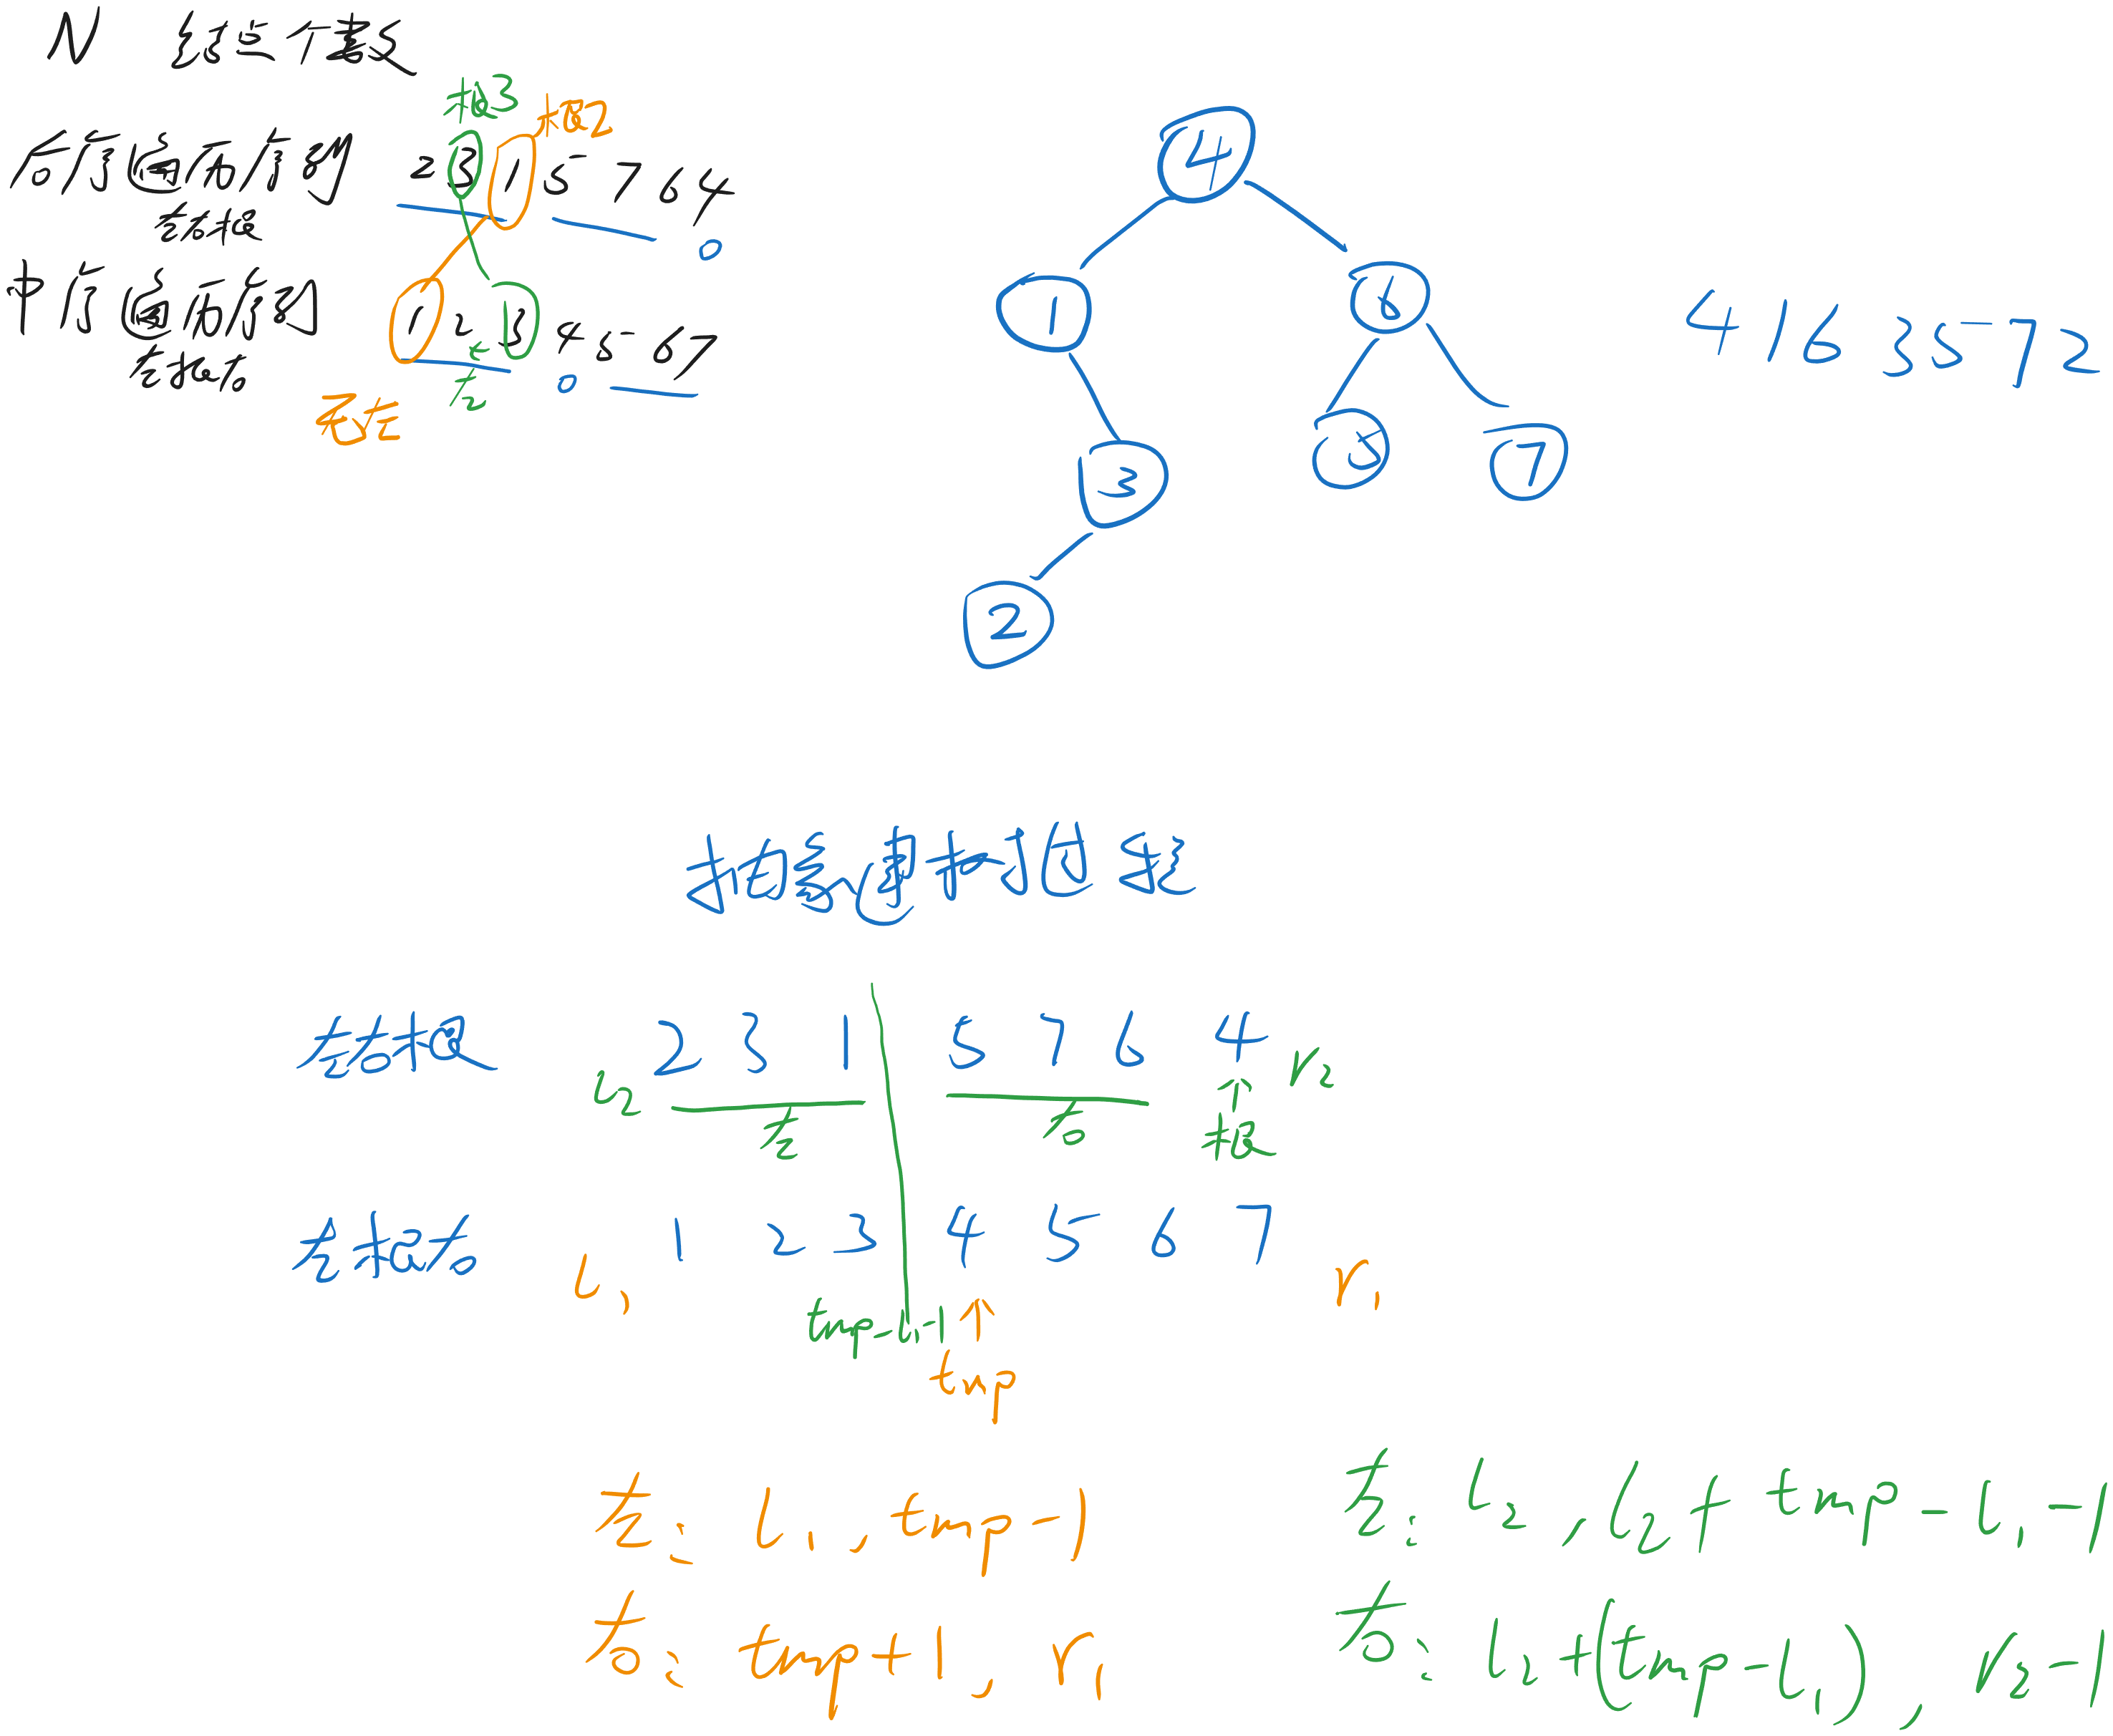 N 结点个数
根3 根2
后序遍历序列 2 3 1 5 7 6 4
左右根
中序遍历序列 1 2 3 4 5 6 7
左根右
左
左
无左
4
1
6
3
5
7
2
4 1 6 3 5 7 2
抽象建树过程
左右根 2 3 1 5 7 6 4
l2 r2
左 右 根
左根右 1 2 3 4 5 6 7
l1 r1
tmp-l1-1
tmp
左: l1, tmp-1
左: l2, l2+tmp-l1-1
右: tmp+1, r1
右: l2+(tmp-l1), r2-1